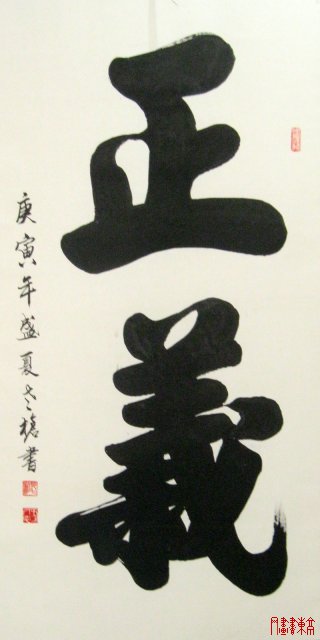 正義
庚寅年盛夏
書